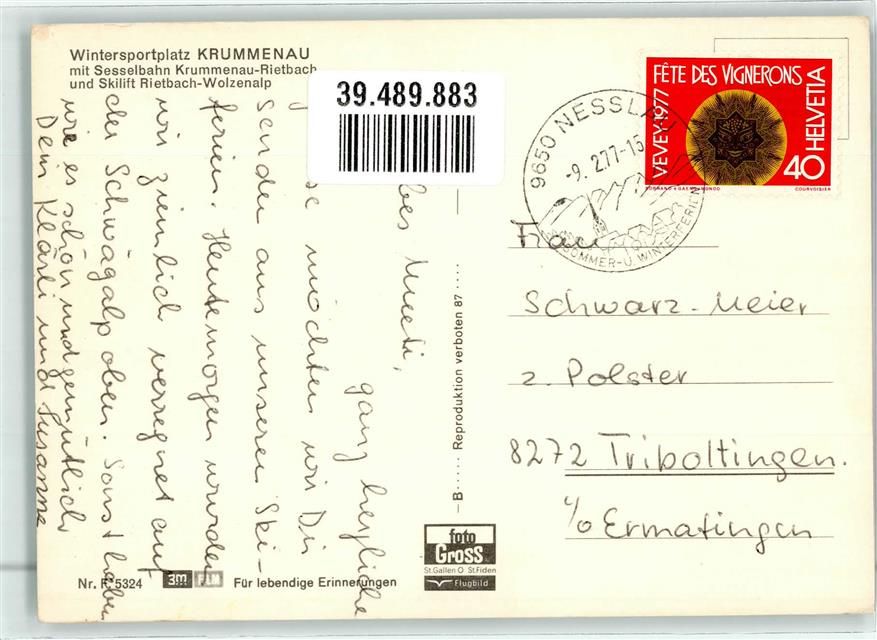 Wintersportplatz KRUMMENAU
mit Sesselbahn Krummenau-Rietbach
und Skilift Rietbach-Wolzenalp
39.489.883
bes Mueti,
ganz herzliche
se möchten wir Dir
senden aus unseren Ski-
ferien. Heute morgen wurden
wir ziemlich verregnet auf
der Schwägalp oben. Sonst haben
wir es schön und gemütlich
Dein Kläsli und Susanne
— B ····· Reproduktion verboten 87 ·····
foto
Gross
St. Gallen O St. Fiden
Flugbild
Nr. R 5324
3m
Für lebendige Erinnerungen
9650 NESSLAU
-9. 2.77-15
SOMMER- U. WINTERFERIEN
FÊTE DES VIGNERONS
VEVEY 1977
HELVETIA
40
COURVOISIER
Frau
Schwarz-Meier
z. Polster
8272 Triboltingen.
c/o Ermatingen